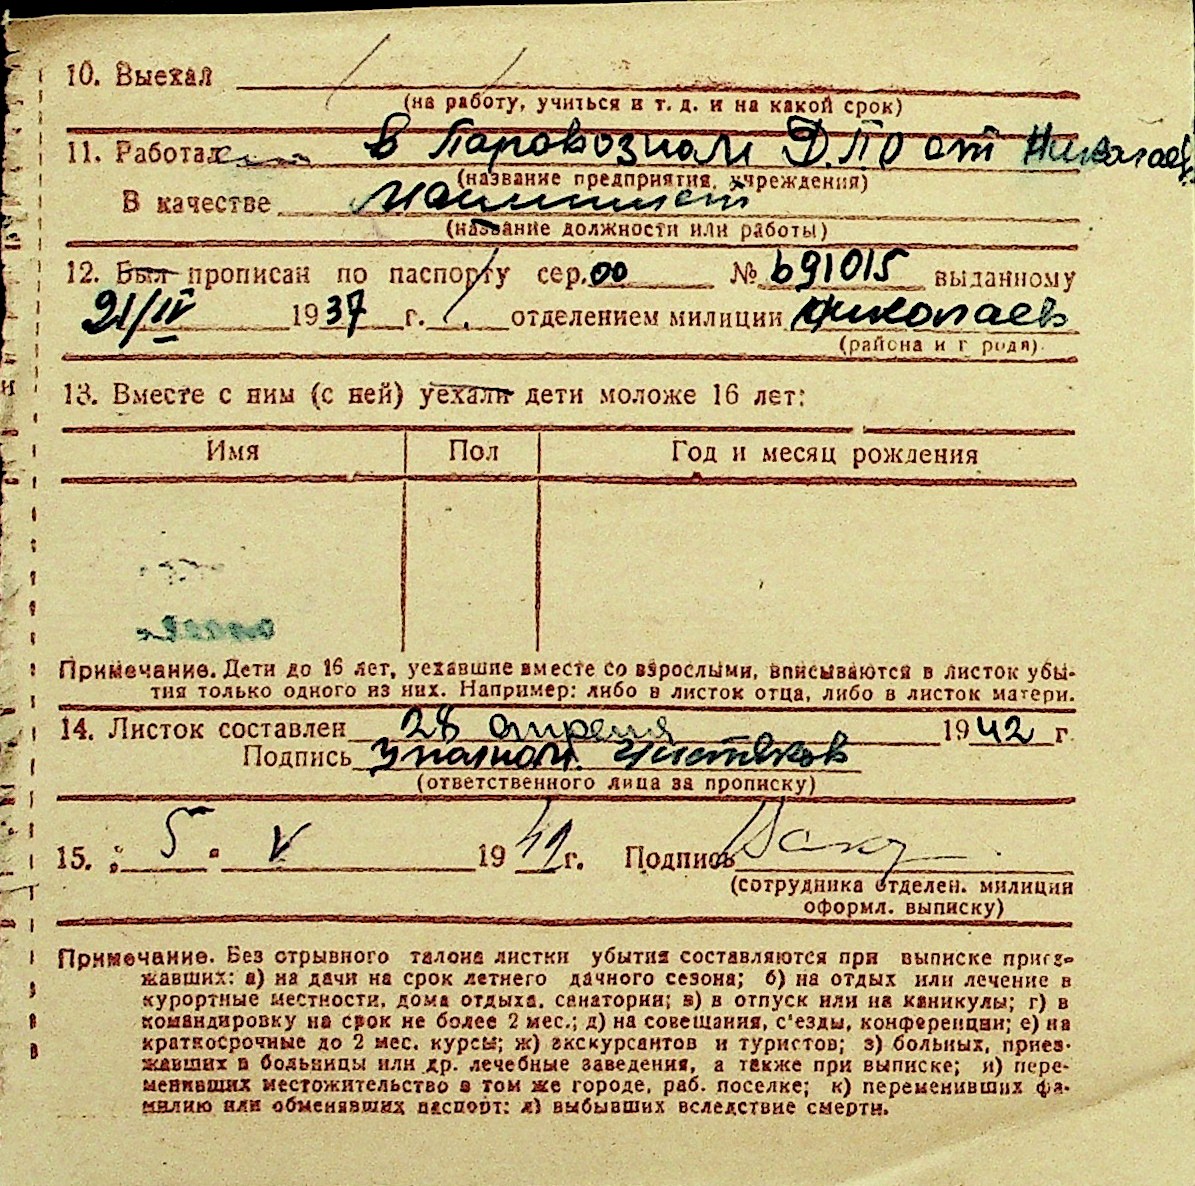 10. Выехал
(на работу, учиться и т. д. и на какой срок)
11. Работал в Паровозном Д.ПО ст Николаев
(название предприятия, учреждения)
В качестве машинист
(название должности или работы)
12. Был прописан по паспорту сер. 00 № 691015 выданному
21/IV 1937 г. отделением милиции Николаев
(района и города)
13. Вместе с ним (с ней) уехали дети моложе 16 лет:
Имя Пол Год и месяц рождения
Примечание. Дети до 16 лет, уехавшие вместе со взрослыми, вписываются в листок убы-
тия только одного из них. Например: либо в листок отца, либо в листок матери.
14. Листок составлен 28 апреля 1942 г
Подпись уполном. Чистяков
(ответственного лица за прописку)
15. 5 V 1942 г. Подпись
(сотрудника отделен. милиции
оформл. выписку)
Примечание. Без отрывного талона листки убытия составляются при выписке приез-
жавших: а) на дачи на срок летнего дачного сезона; б) на отдых или лечение в
курортные местности, дома отдыха, санатории; в) в отпуск или на каникулы; г) в
командировку на срок не более 2 мес.; д) на совещания, с'езды, конференции; е) на
краткосрочные до 2 мес. курсы; ж) экскурсантов и туристов; з) больных, приез-
жавших в больницы или др. лечебные заведения, а также при выписке; и) пере-
менивших местожительство в том же городе, раб. поселке; к) переменивших фа-
милию или обменявших паспорт; л) выбывших вследствие смерти.